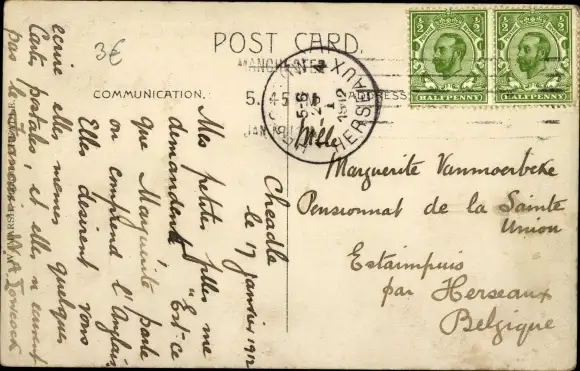 3€
POST CARD.
COMMUNICATION.
ADDRESS
MANCHESTER
5. 45
JAN 17 12
HERSEAUX
5-6
1912
HALFPENNY
HALFPENNY
Cheadle
le 17 janvier 1912
Mes petites filles me
demandent "Est-ce
que Marguerite parle
on comprend l'Anglais
Elles desirent vous
ecrire elles memes quelques
Carte postales, et elles n'ecrivent
pas le Francais.
Mlle
Marguerite Vanmoerbeke
Pensionnat de la Sainte
Union
Estaimpuis
par Herseaux
Belgique